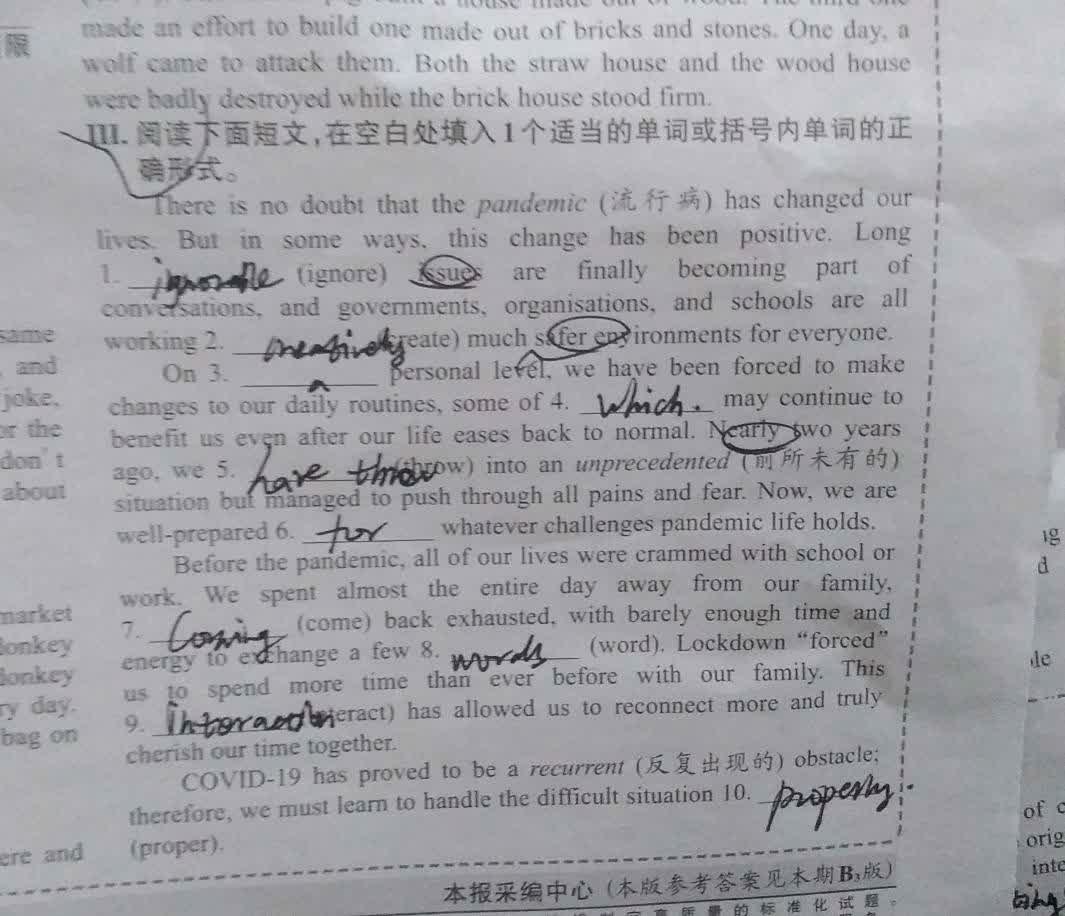 made an effort to build one made out of bricks and stones. One day, a
限
wolf came to attack them. Both the straw house and the wood house
were badly destroyed while the brick house stood firm.
III. 阅读下面短文,在空白处填入1个适当的单词或括号内单词的正
确形式。
There is no doubt that the pandemic (流行病) has changed our
lives. But in some ways, this change has been positive. Long
1. (ignore) issues are finally becoming part of
conversations, and governments, organisations, and schools are all
same
working 2. creatively (create) much safer environments for everyone.
and
On 3. a personal level, we have been forced to make
joke,
changes to our daily routines, some of 4. which. may continue to
or the
benefit us even after our life eases back to normal. Nearly two years
don't
ago, we 5. have throw (throw) into an unprecedented (前所未有的)
about
situation but managed to push through all pains and fear. Now, we are
well-prepared 6. for whatever challenges pandemic life holds.
Before the pandemic, all of our lives were crammed with school or
work. We spent almost the entire day away from our family,
market
7. Coming (come) back exhausted, with barely enough time and
donkey
energy to exchange a few 8. words (word). Lockdown “forced”
donkey
us to spend more time than ever before with our family. This
ry day.
9. interaction (interact) has allowed us to reconnect more and truly
bag on
cherish our time together.
COVID-19 has proved to be a recurrent (反复出现的) obstacle;
therefore, we must learn to handle the difficult situation 10. properly.
ere and
(proper).
本报采编中心 (本版参考答案见本期B₃版)
的标准化试题。
ig
d
de
of
orig
inte